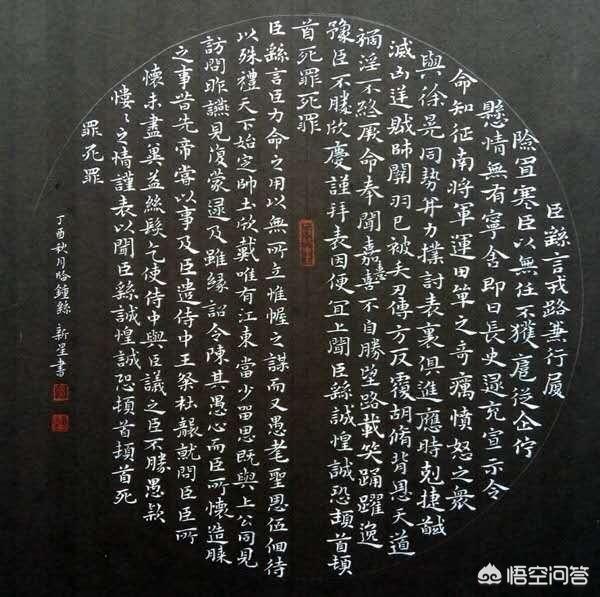 臣繇言戎路兼行履
險冒寒臣以無任不獲扈從企佇
懸情無有寧舍即日長史逯充宣示令
命知征南將軍運田單之奇癘憤怒之衆
與徐晃同勢并力撲討表裏俱進應時剋捷馘
滅凶逆賊帥關羽已被矢刃傅方反覆胡脩背恩天道
禍淫不終厥命奉聞嘉憙喜不自勝望路載笑踊躍逸
豫臣不勝欣慶謹拜表因便宜上聞臣繇誠惶誠恐頓首頓
首死罪死罪
臣繇言臣力命之用以無所立惟幄之謀而又愚耄聖恩伍佪待
以殊禮天下始定師士欣戴唯有江東當少留思既與上公同見
訪問昨讌見復蒙逮及雖緣詔令陳其愚心而臣所懷造膝
之事昔先帝嘗以事及臣遣侍中王粲杜襲就問臣臣所
懷未盡冀益絲髮乞使侍中與臣議之臣不勝愚款
慺々之情謹表以聞臣繇誠惶誠恐頓首頓首死
罪死罪
丁酉秋月臨鍾繇 新星書
悟空问答